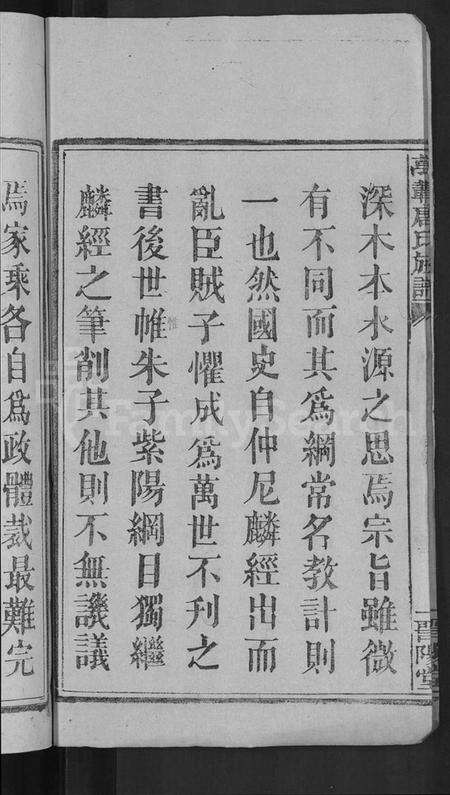 萬華唐氏族譜
晉陽堂
深木本水源之思焉宗旨雖微
有不同而其爲綱常名教計則
一也然國史自仲尼麟經出而
亂臣賊子懼成爲萬世不刊之
書後世帷朱子紫陽綱目獨繼
惟
麟經之筆削其他則不無譏議
焉家乘各自爲政體裁最難完
FamilySearch